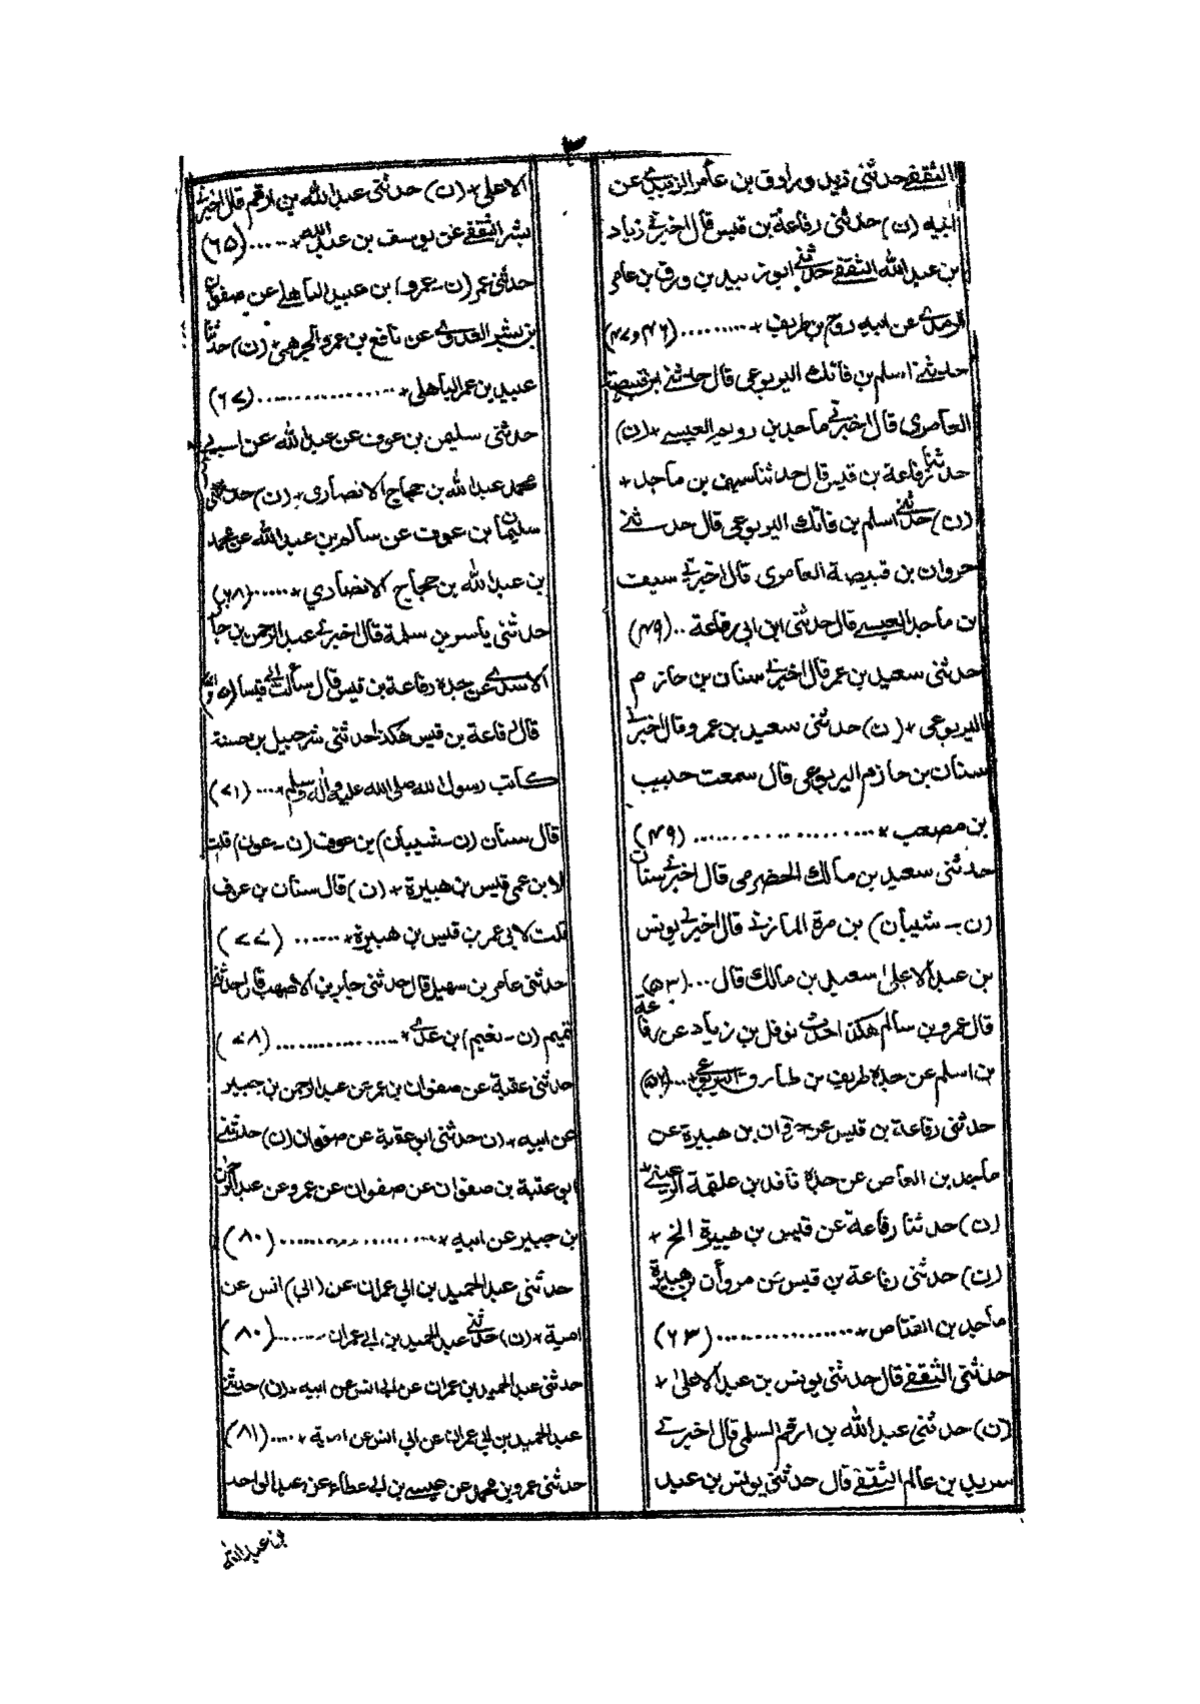 ٣
الثقفے حدثنی زيد وبرادق بن عامر الزبيدے عن
ابيه (ن) حدثنی رفاعة بن قيس قال اخبرنے زياد
بن عبد الله الثقفے حدثنے ابو زبيد بن ورق بن عامر
عن ابيه روح بن طريف + ......... (٤٦ و ٤٧)
حدثنے اسلم بن فاتك اليربوعی قال حدثنے ابن قبيصة
العامری قال اخبرنے ماجد بن رويم العبسے + (ن)
حدثنا رفاعة بن قيس قال حدثنا سيف بن ماجد +
(ن) حدثنے اسلم بن فاتك اليربوعی قال حدثنے
مروان بن قبيصة العامری قال اخبرنے سيف
بن ماجد العبسے قال حدثنی ابن ابی رفاعة .. (٤٩)
حدثنی سعيد بن عمر قال اخبرنے سنان بن حازم
اليربوعی + (ن) حدثنی سعيد بن عمرو قال اخبرنے
سنان بن حازم اليربوعی قال سمعت حبيب
بن مصعب + .................... (٤٩)
حدثنی سعيد بن مالك الحضرمی قال اخبرنے سنان
(ن - شيبان) بن مرة المازنے قال اخبرنے يونس
بن عبد الاعلىٰ سعيد بن مالك قال ... (٥٣)
قال عمرو بن سالم هكذا حدث نوفل بن زياد عن رفاعة
بن اسلم عن جده طريف بن طارق اليربوعے + ... (٥٧)
حدثنی رفاعة بن قيس عن مروان بن هبيرة عن
ماجد بن العاص عن جده نافد بن علقمة الرعينے +
(ن) حدثنا رفاعة عن قيس بن هبيرة الخ +
(ن) حدثنی رفاعة بن قيس عن مروان بن هبيرة
ماجد بن القناص + ................. (٦٣)
حدثنی الثقفے قال حدثنی يونس بن عبد الاعلىٰ +
(ن) حدثنی عبد الله بن ارقم السلمی قال اخبرنے
سريد بن عالم الثقفے قال حدثنی يونس بن عبد
الاعلی + (ن) حدثنی عبد الله بن ارقم قال اخبرنے
بشر الثقفے عن يوسف بن عبد الله + ..... (٦٥)
حدثنی عمر (ن - عمرو) بن عبيد الباهلے عن صفوان
بن بشر العدوے عن نافع بن عمرو الجرهمی + (ن) حدثنا
عبيد بن عمر الباهلی + .................. (٦٧)
حدثنی سليمن بن عوف عن عبد الله عن ابيے
محمد عبد الله بن حجاج الانصاری + (ن) حدثنی
سليمان بن عوف عن سالم بن عبد الله عن محمد
بن عبد الله بن حجاج الانصاري + ...... (٦٨)
حدثنی ياسر بن سلمة قال اخبرنے عبد الرحمن بن
الاسدے عن جده رفاعة بن قيس قال سألت ابی قيسا
قال رفاعة بن قيس هكذا حدثنی شرحبيل بن حسنة
كاتب رسول الله صلی الله عليه واله وسلم + ... (٧١)
قال سنان (ن - شيبان) بن عوف (ن - عون) قلت
لابن عمی قيس بن هبيرة + (ن) قال سنان بن عوف
قلت لابی عمر بن قيس بن هبيرة + ...... (٧٤)
حدثنی عامر بن سهيل قال حدثنی جابر بن الاصهب قال حدثنے
تميم (ن - نعيم) بن عدے + ................ (٧٨)
حدثنی عقبة عن صفوان بن عمر عن عبد الرحمن بن جبير
عن ابيه + (ن حدثنی ابو عقبة عن صفوان (ن) حدثنے
ابو عتبة بن صفوان عن صفوان عن عمرو عن عبد الرحمٰن
بن جبير عن ابيه + .................. (٨٠)
حدثنی عبد الحميد بن ابی عمران عن (ابی) انس عن
امية + (ن) حدثنے عبد الحميد بن ابی عمران ....... (٨٠)
حدثنی عبد الحميد بن عمران عن ابی انس عن ابيه + (ن) حدثنے
عبد الحميد بن ابی عمران عن ابی انس عن امية + .... (٨١)
حدثنی عمرو بن محمد عن عيسے بن ابی عطاء عن عبد الواحد
بن عبد الله